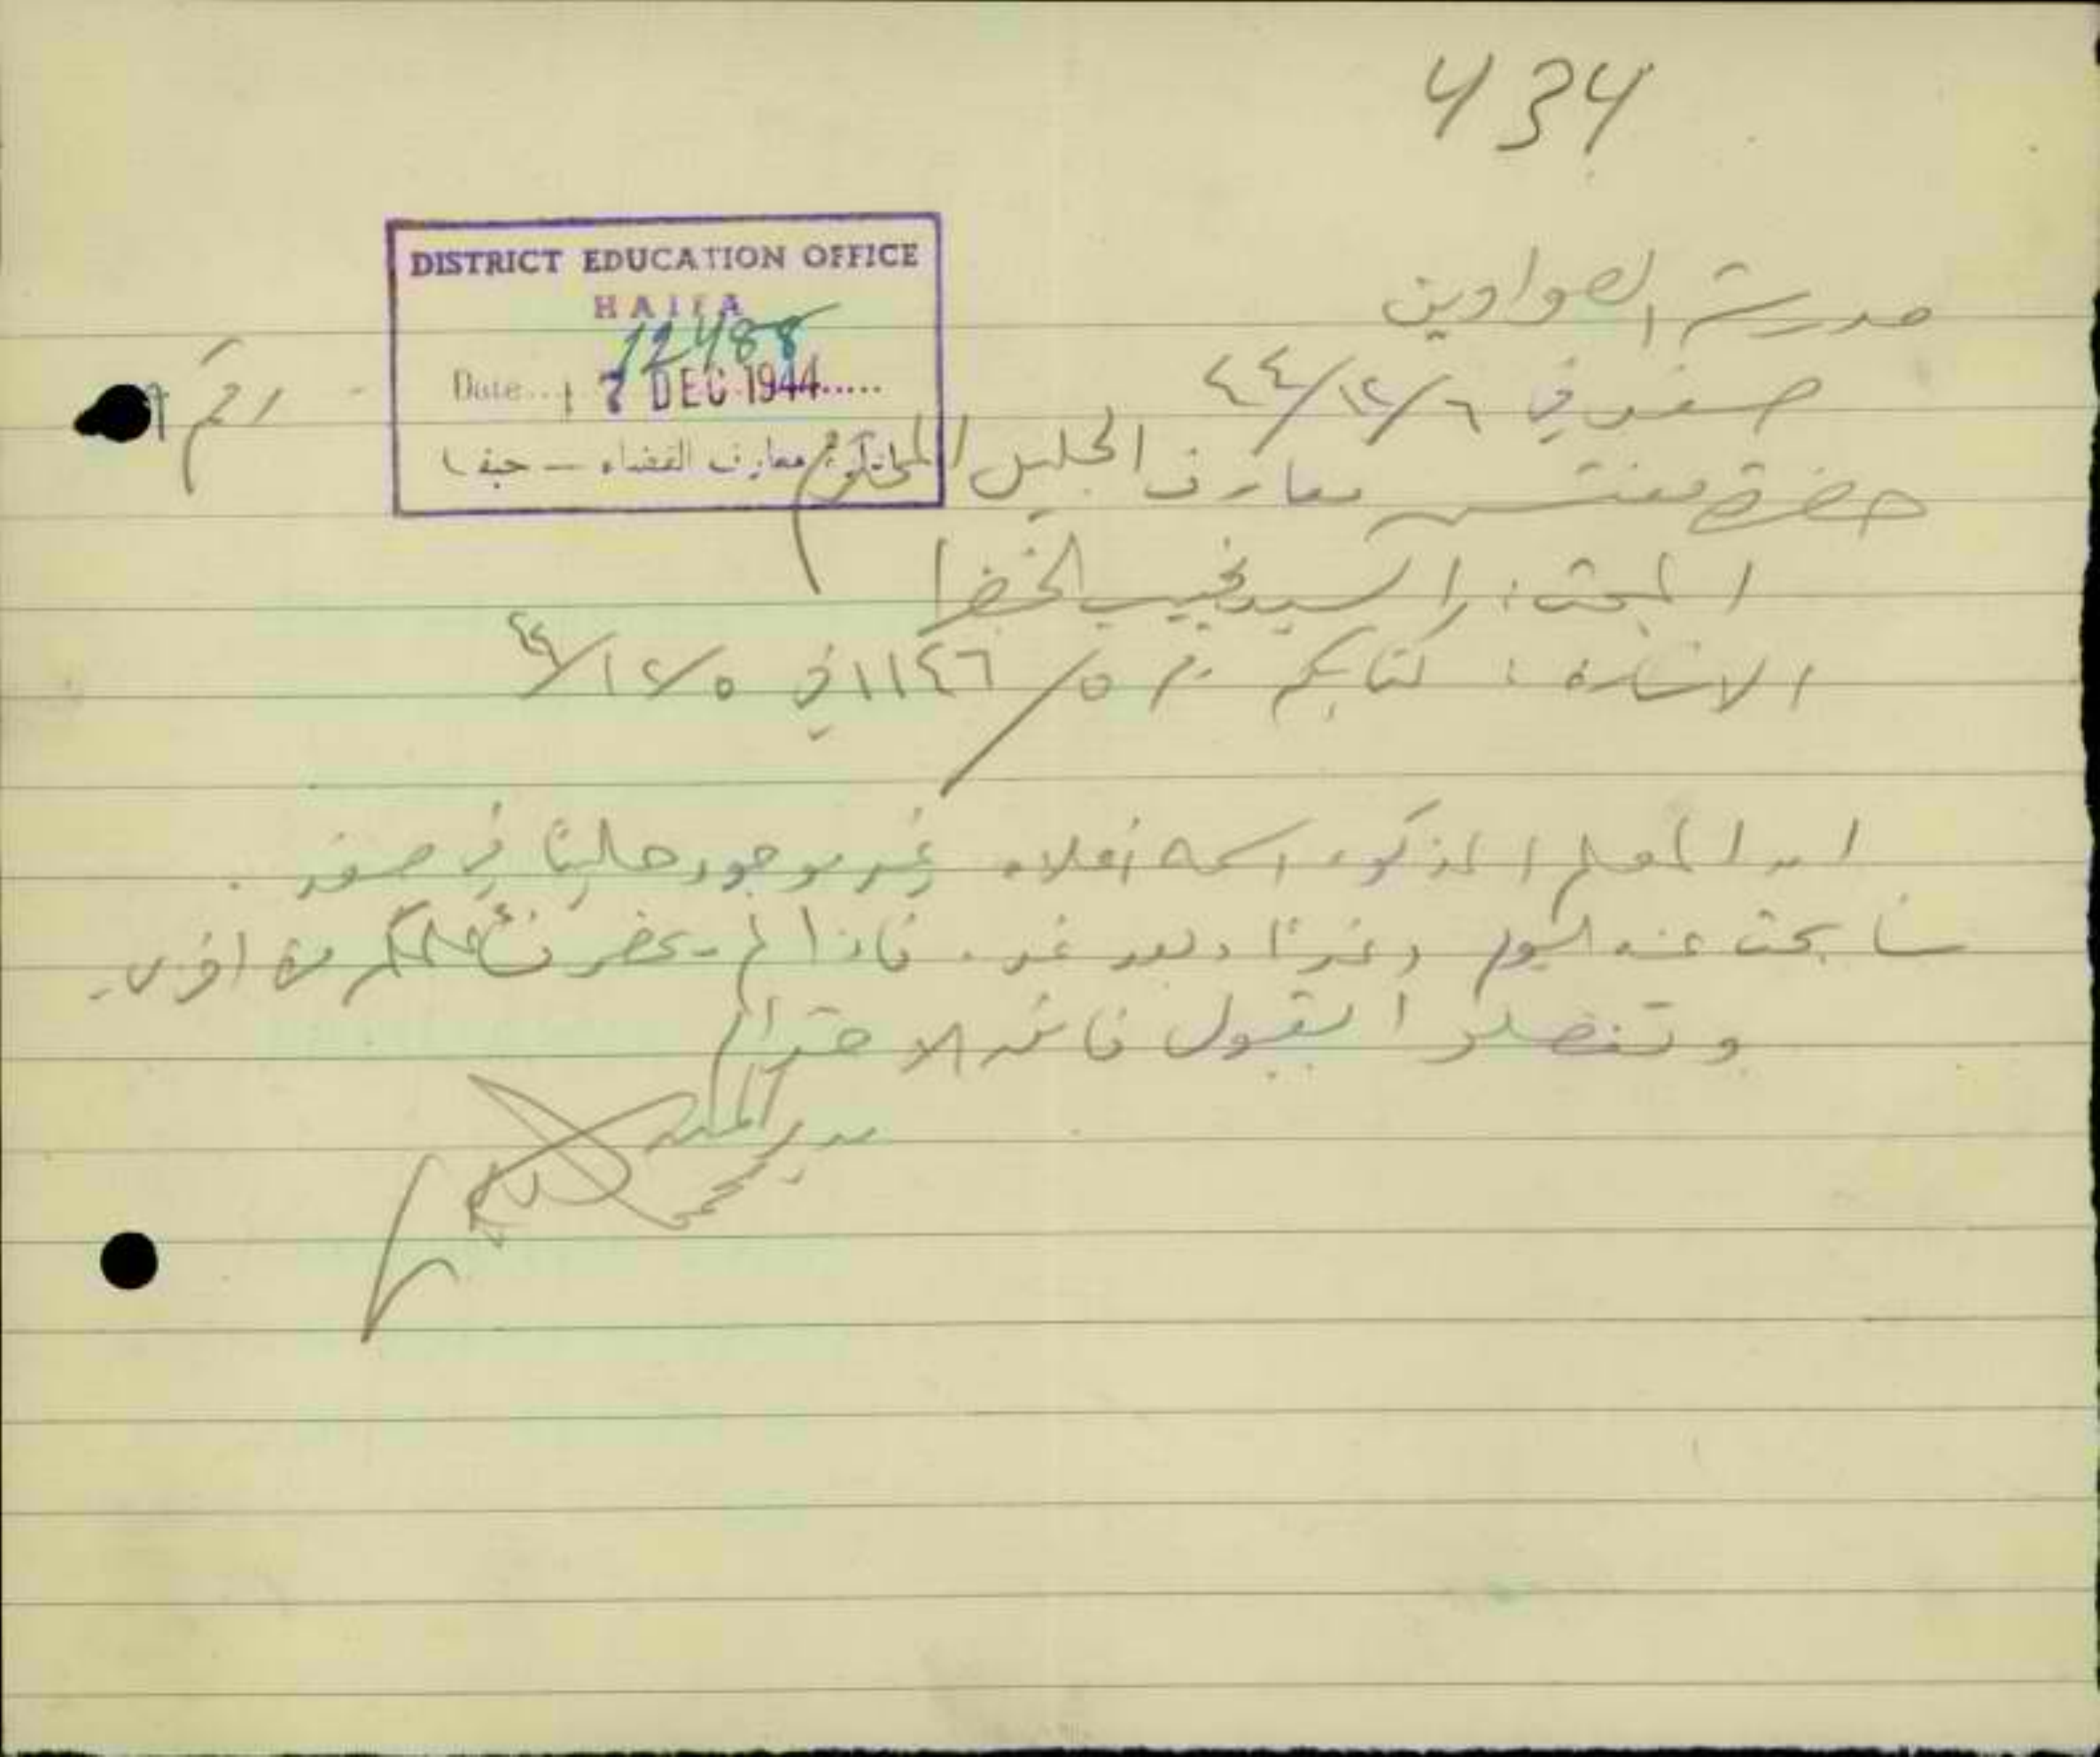 434
DISTRICT EDUCATION OFFICE
HAIFA
12488
Date... 7 DEC 1944.....
معارف القضاء – حيفا
مدرسة الصواوين
صفد في ٦/١٢/٤٤
رقم
حضرة مفتش معارف الجليل المحترم
المبحث: السيد نجيب الخضرا
الاشارة: كتابكم رقم ٥/١١٤٦ في ٥/١٢/٤٤
ان المعلم المذكور اسمه أعلاه غير موجود حالياً في صفد.
سأبحث عنه اليوم وغداً وبعد غد. فاذا لم يحضر فسأعلمكم مرة اخرى.
وتفضلوا بقبول فائق الاحترام
مدير المدرسة